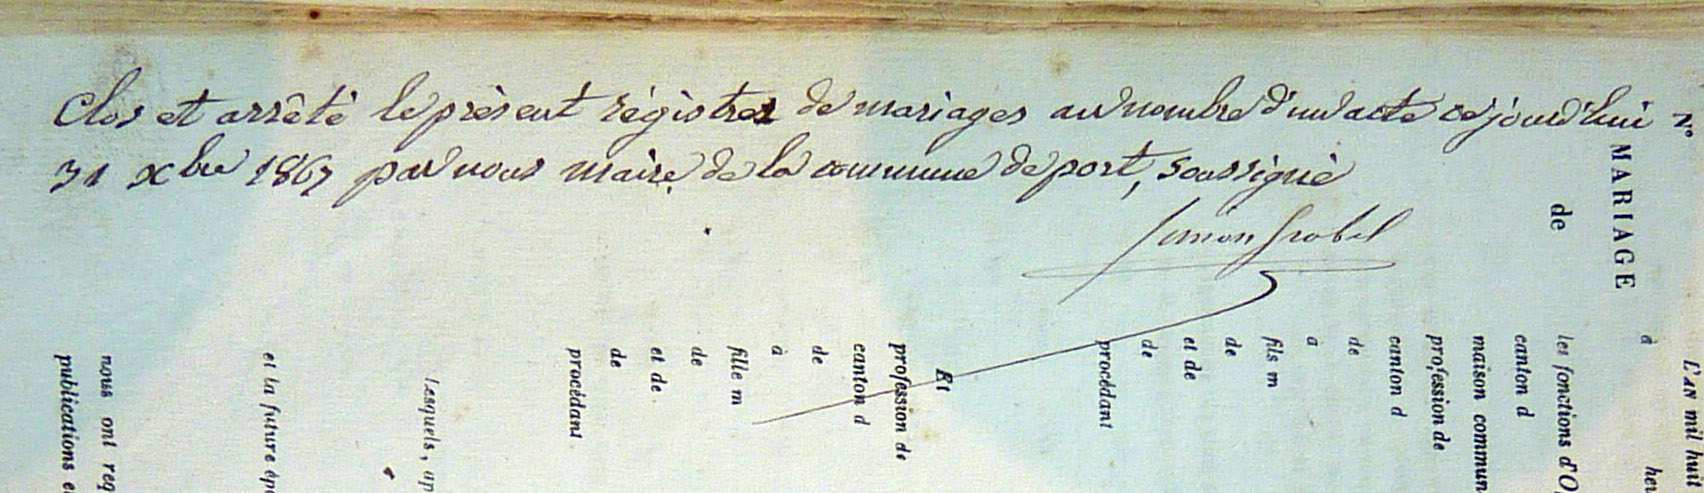 Clos et arrêté le présent régistre de mariages au nombre d'un acte ce jourd'hui
31 xbre 1867 par nous maire de la commune de port, soussigné
Simon Grobel
N.o
MARIAGE
de
L'AN mil huit
à
heu
les fonctions d'O
canton d
maison commun
profession de
canton d
de
a
fils m
de
et de
de
procédant
Et
profession de
canton d
de
à
fille m
de
et de
de
procédant
Lesquels, ap
et la future épo
nous ont req
publications e